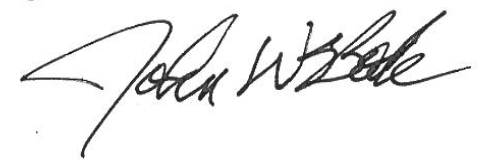 John W Bode